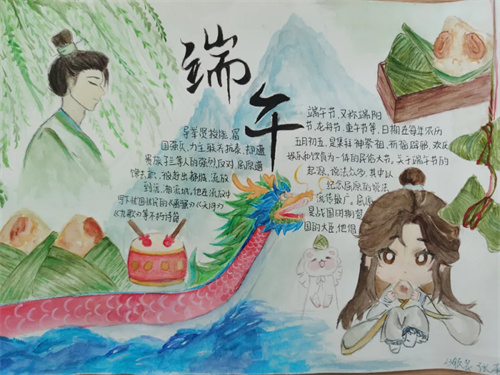 端午
端午节,又称端阳
节,龙舟节,重午节等,日期在每年农历
五月初五,是集拜神祭祖,祈福辟邪,欢庆
娱乐和饮食为一体的民俗大节。关于端午节的
起源,说法众多,其中以
纪念屈原的说法
流传最广。屈原
是战国时期楚
国的大臣,他倡
导举贤授能,富
国强兵,力主联齐抗秦,却遭
贵族子兰等人的强烈反对,屈原遭
馋去职,被赶出都城,流放
到沅、湘流域。他在流放中
写下忧国忧民的《离骚》《天问》
《九歌》等不朽诗篇